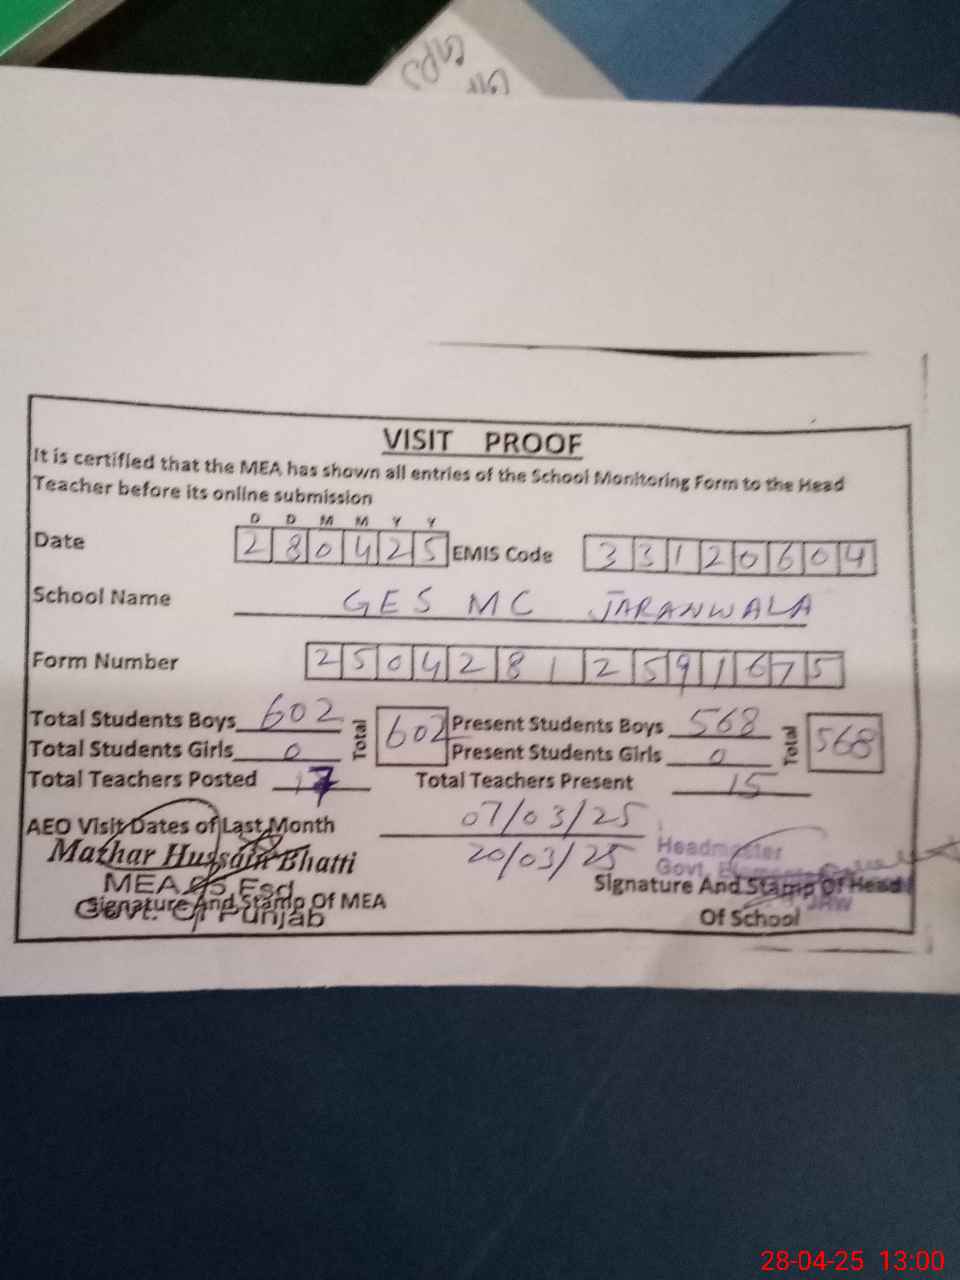 VISIT PROOF
It is certified that the MEA has shown all entries of the School Monitoring Form to the Head
Teacher before its online submission
D D M M Y Y
Date 280425 EMIS Code 33120604
School Name GES MC JARANWALA
Form Number 25042812591675
Total Students Boys 602 Total 602 Present Students Boys 568 Total 568
Total Students Girls 0 Present Students Girls 0
Total Teachers Posted 17 Total Teachers Present 15
AEO Visit Dates of Last Month 07/03/25
20/03/25
Mazhar Hussain Bhatti
MEA 05 Fsd
Govt. Of Punjab
Signature And Stamp Of MEA
Headmaster
Govt.
Signature And Stamp Of Head
Of School
28-04-25 13:00